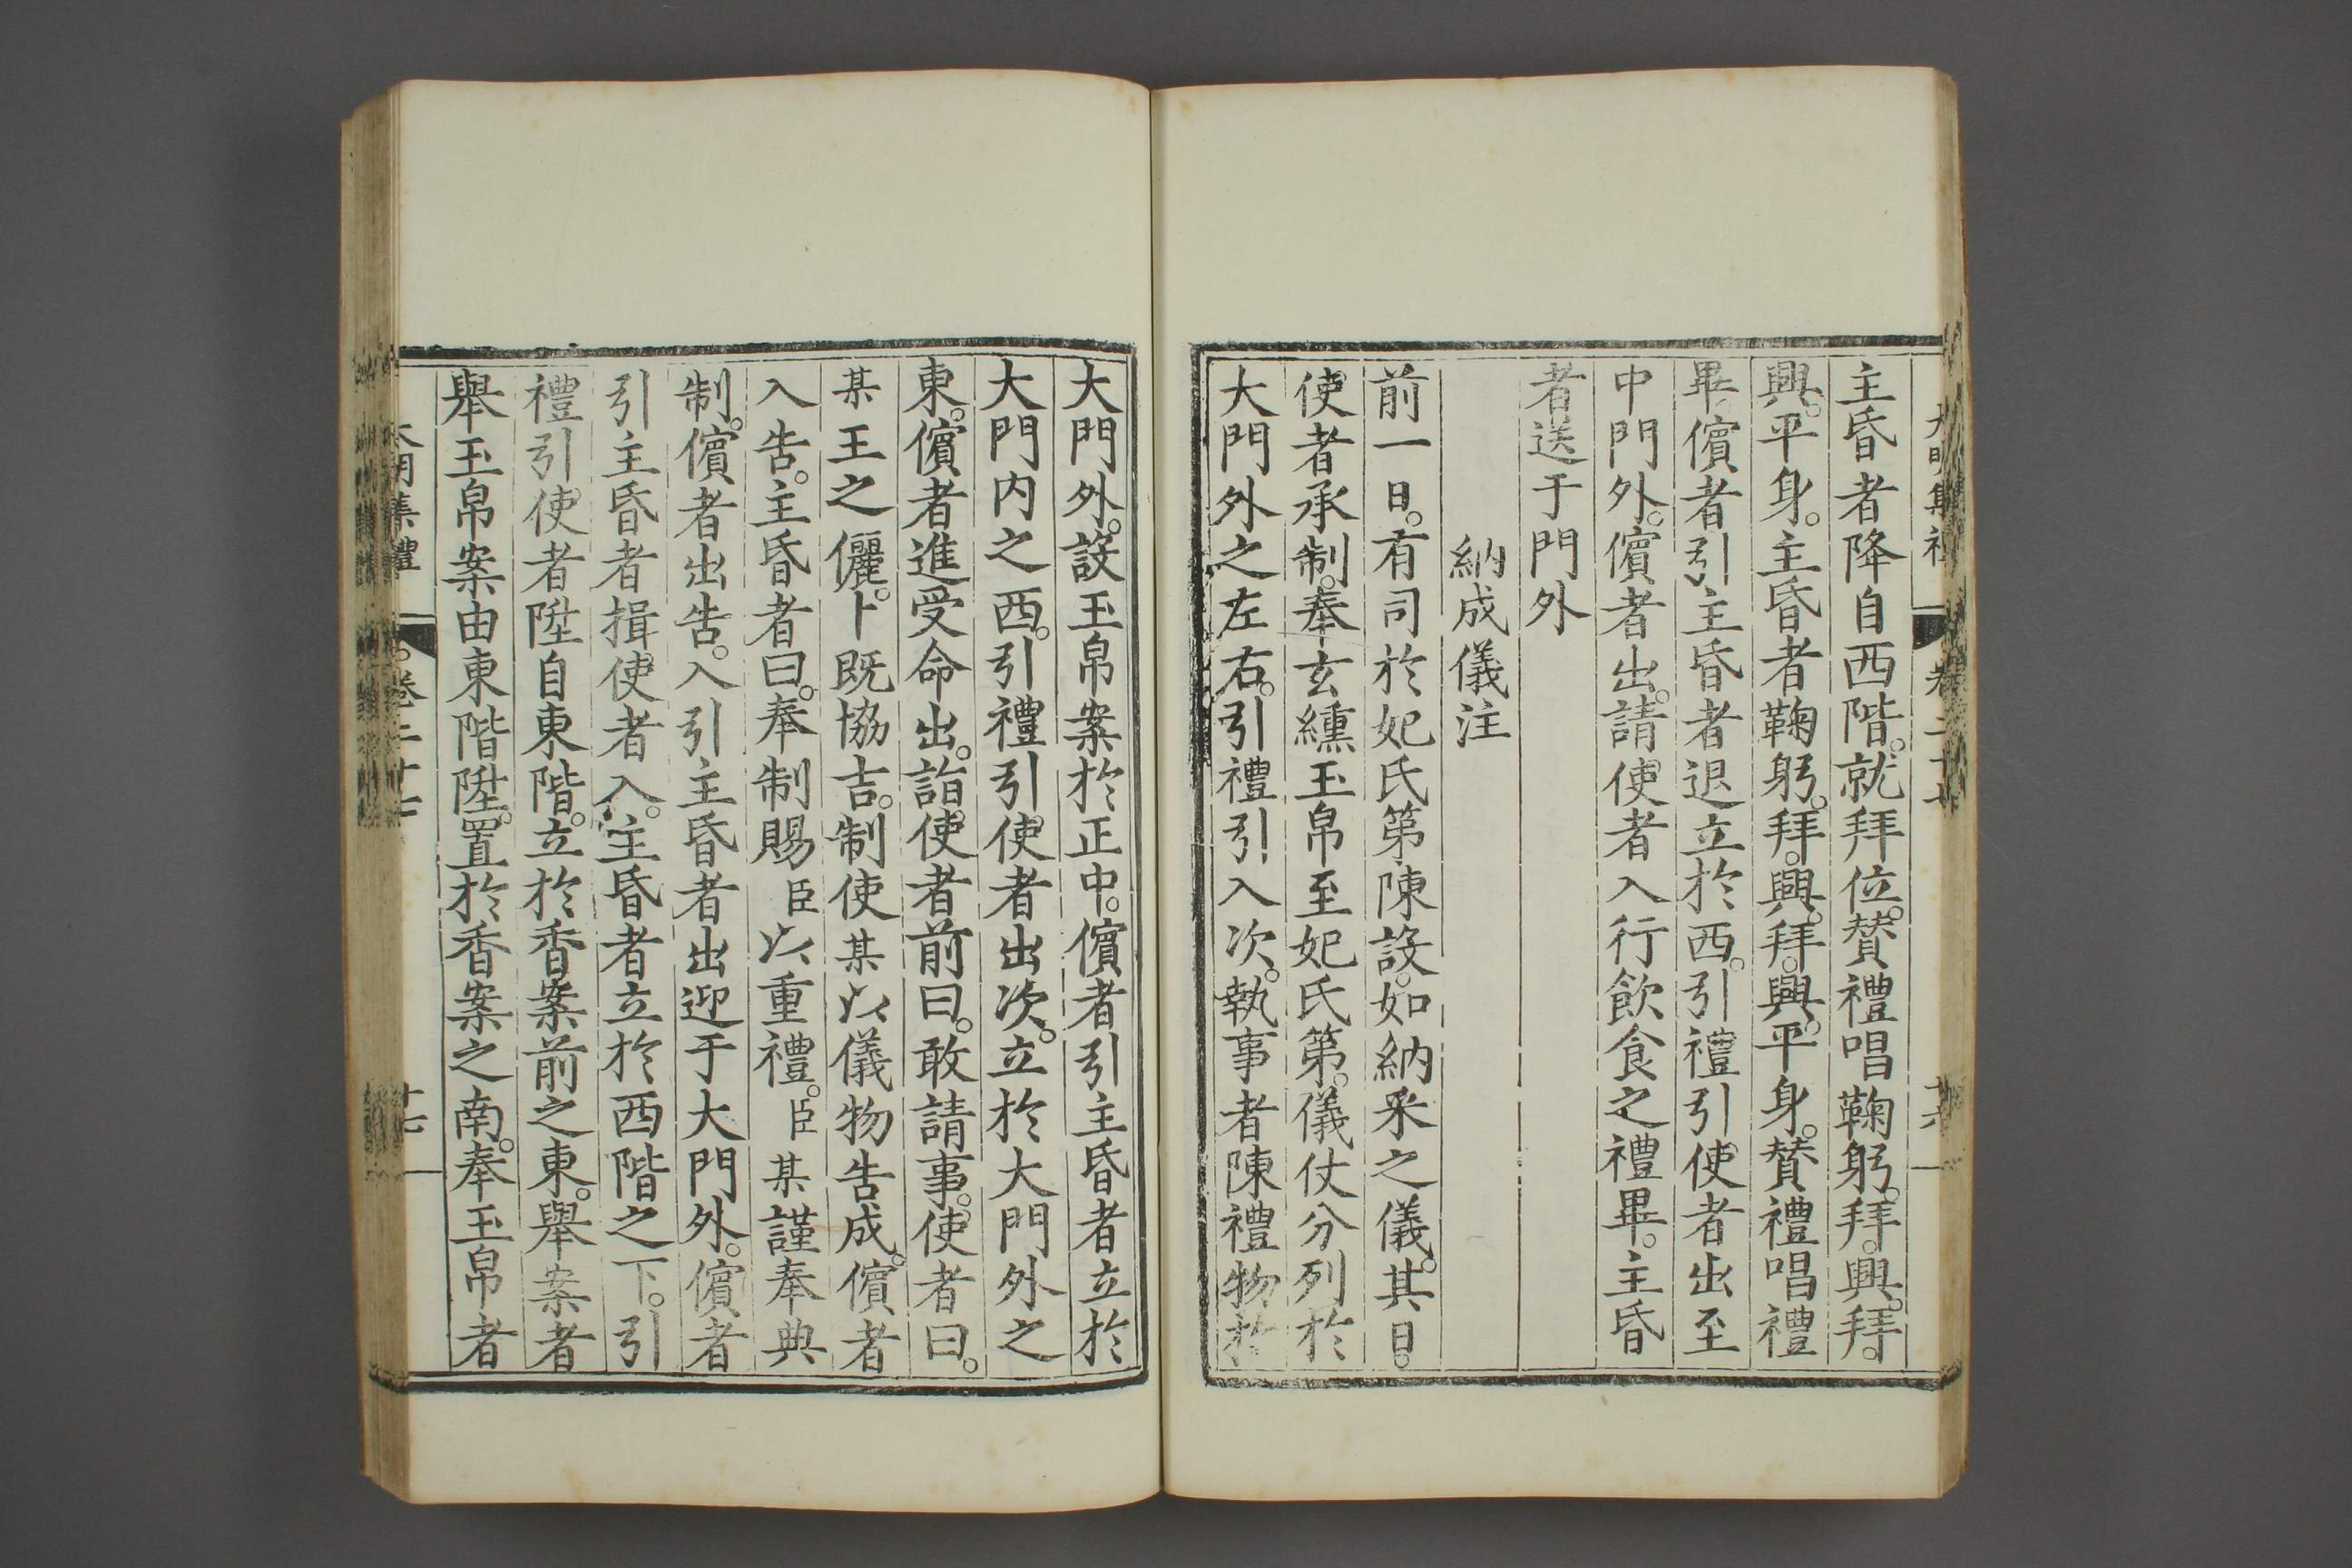 主昏者降自西階。就拜位。贊禮唱鞠躬。拜。興。拜。
興。平身。主昏者鞠躬。拜。興。拜。興。平身。贊禮唱禮
畢。儐者引主昏者退立於西。引禮引使者出至
中門外。儐者出。請使者入行飲食之禮畢。主昏
者送于門外
納成儀注
前一日。有司於妃氏第。陳設。如納采之儀。其日。
使者承制。奉玄纁玉帛至妃氏第。儀仗分列於
大門外之左右。引禮引入次。執事者陳禮物於
大門外。設玉帛案於正中。儐者引主昏者立於
大門内之西。引禮引使者出次。立於大門外之
東。儐者進受命出。詣使者前曰。敢請事。使者曰。
某王之儷。卜既協吉。制使某以儀物告成。儐者
入告。主昏者曰。奉制賜臣以重禮。臣某謹奉典
制。儐者出告。入引主昏者出迎于大門外。儐者
引主昏者揖使者入。主昏者立於西階之下。引
禮引使者陞自東階。立於香案前之東。舉案者
舉玉帛案由東階陞。置於香案之南。奉玉帛者
大明集禮
卷二十七
十七